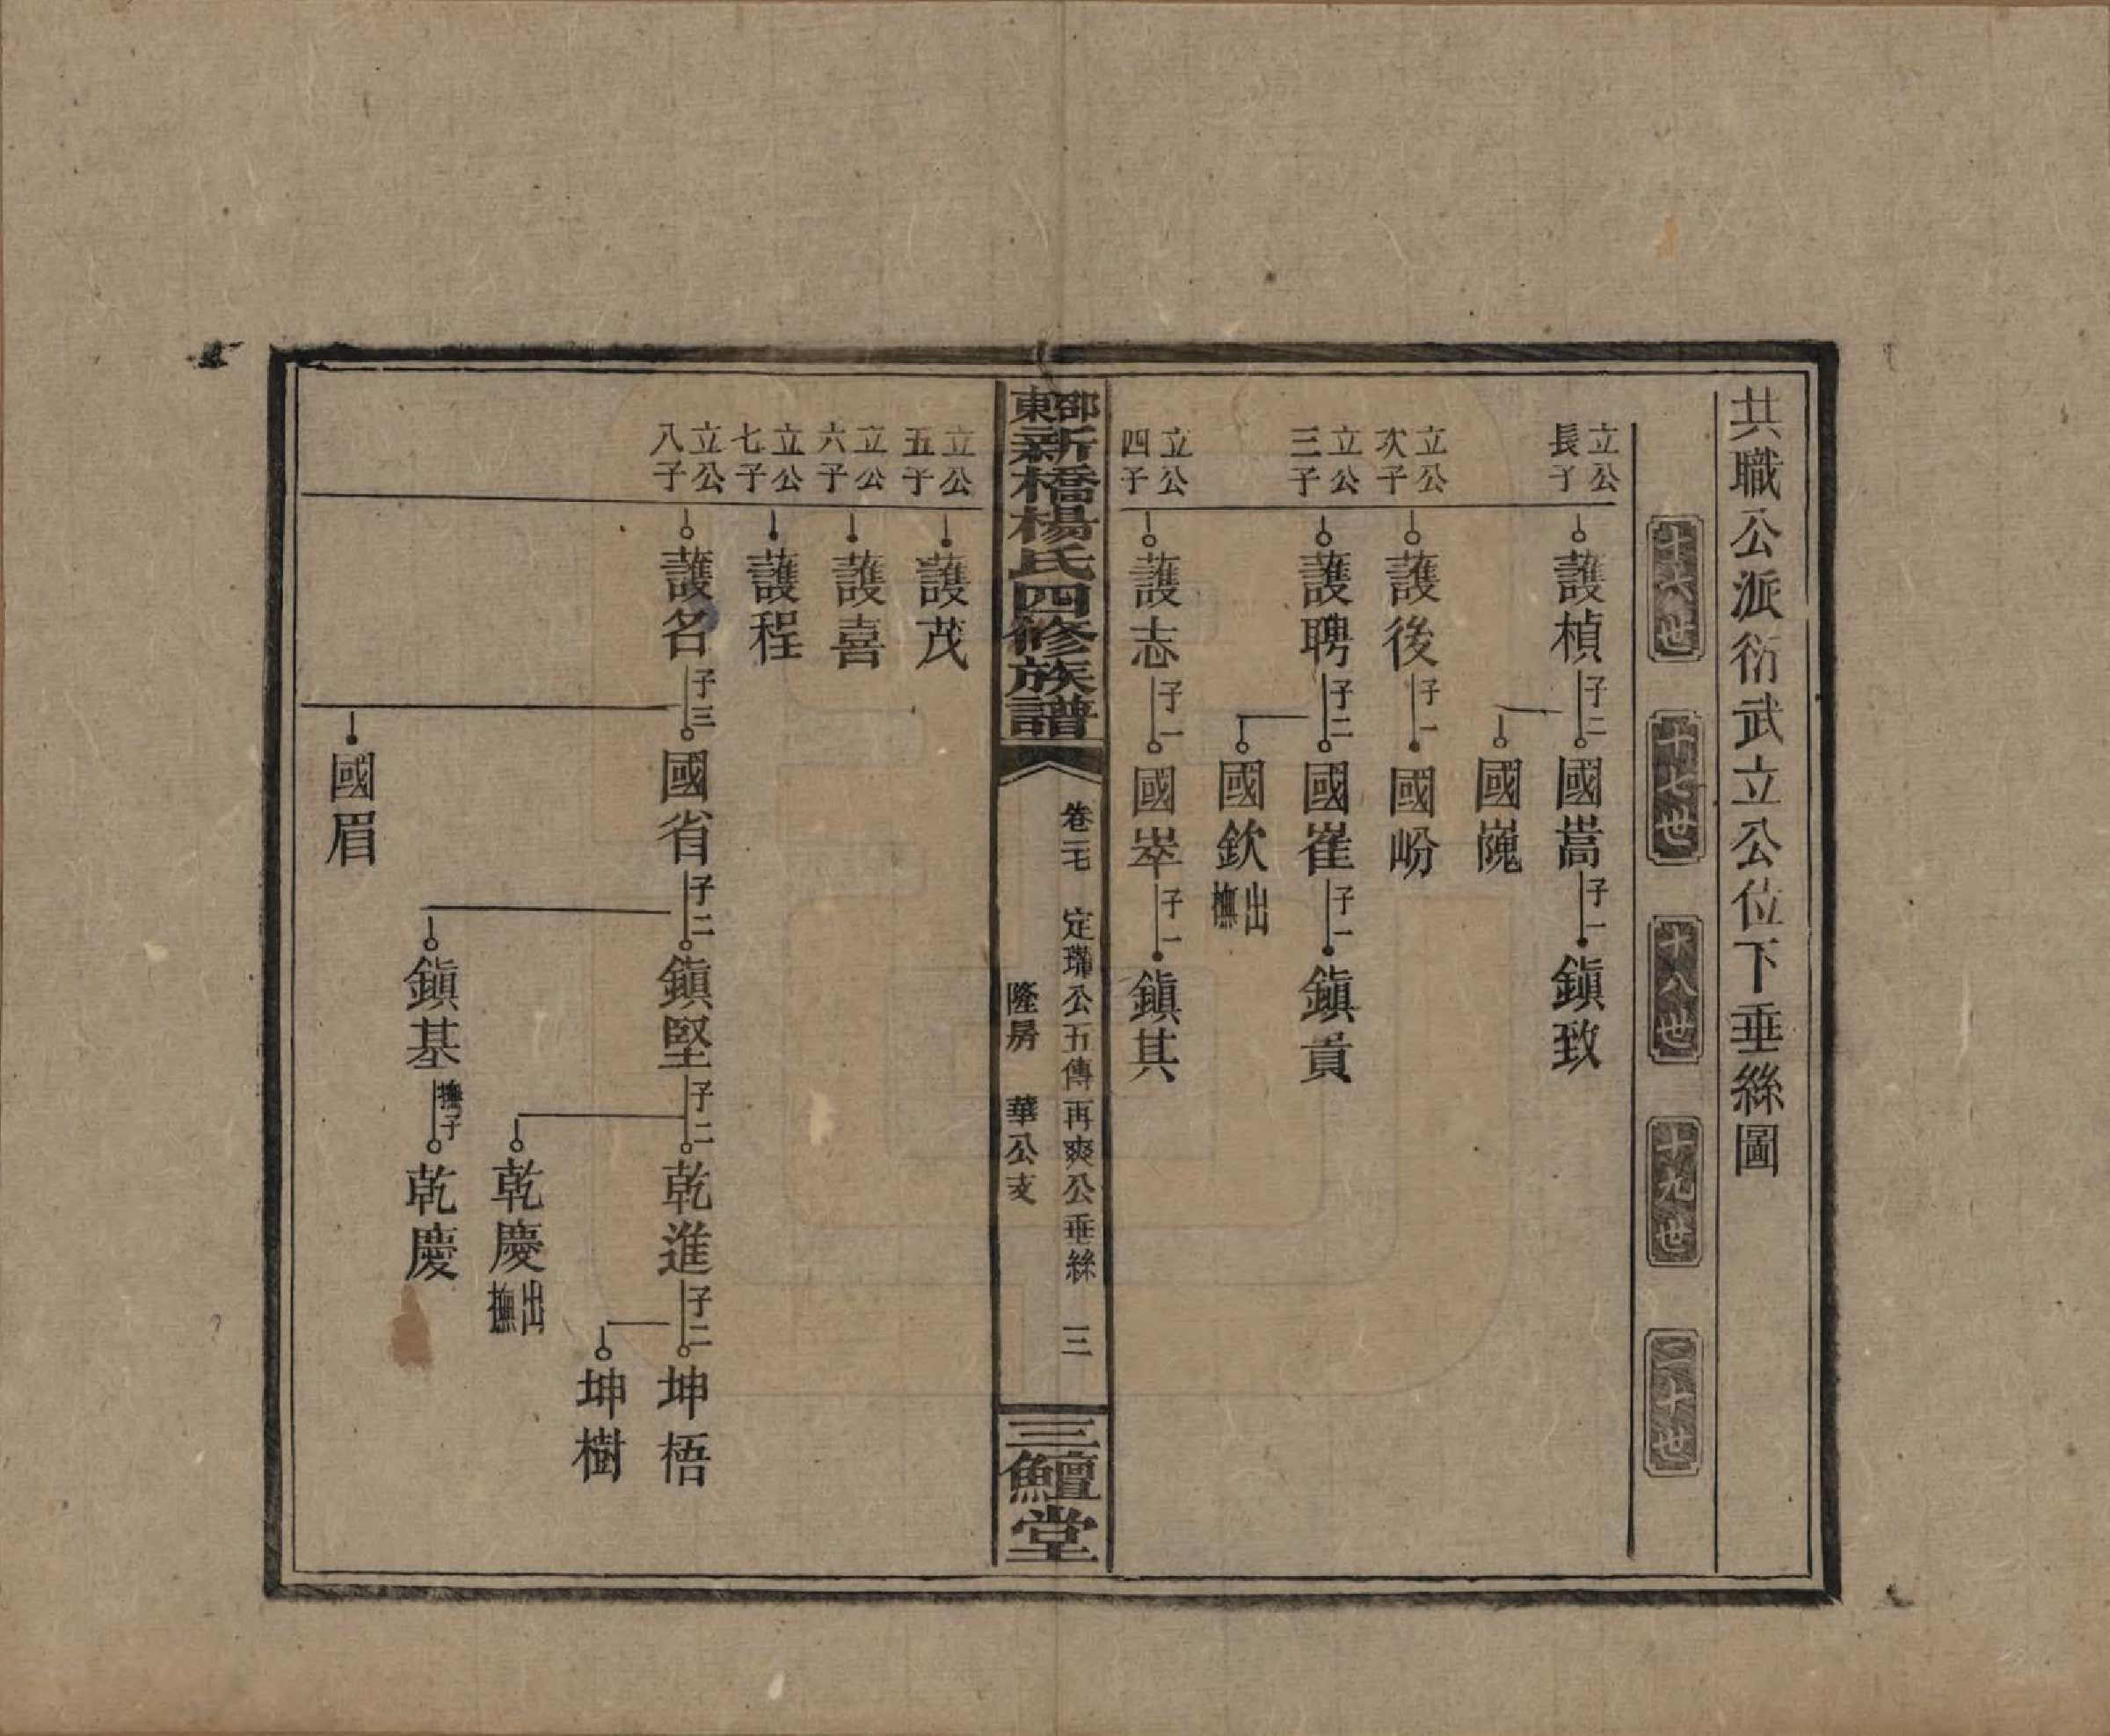 共職公派衍武立公位下垂絲圖
十六世
十七世
十八世
十九世
二十世
立公長子
護楨 子二
國嵩 子一
鎮致
國巍
立公次子
護後 子一
國峃
立公三子
護聘 子二
國崔 子一
鎮貢
國欽 出撫
立公四子
護志 子一
國崒 子一
鎮其
邵東新橋楊氏四修族譜
卷二七 定瓓公五傳再爽公垂絲 三
隆房 華公支
三鱣堂
立公五子
護茂
立公六子
護喜
立公七子
護程
立公八子
護名 子三
國省 子二
鎮堅 子二
乾進 子二
坤梧
坤樹
乾慶 出撫
鎮基 撫子
乾慶
國眉